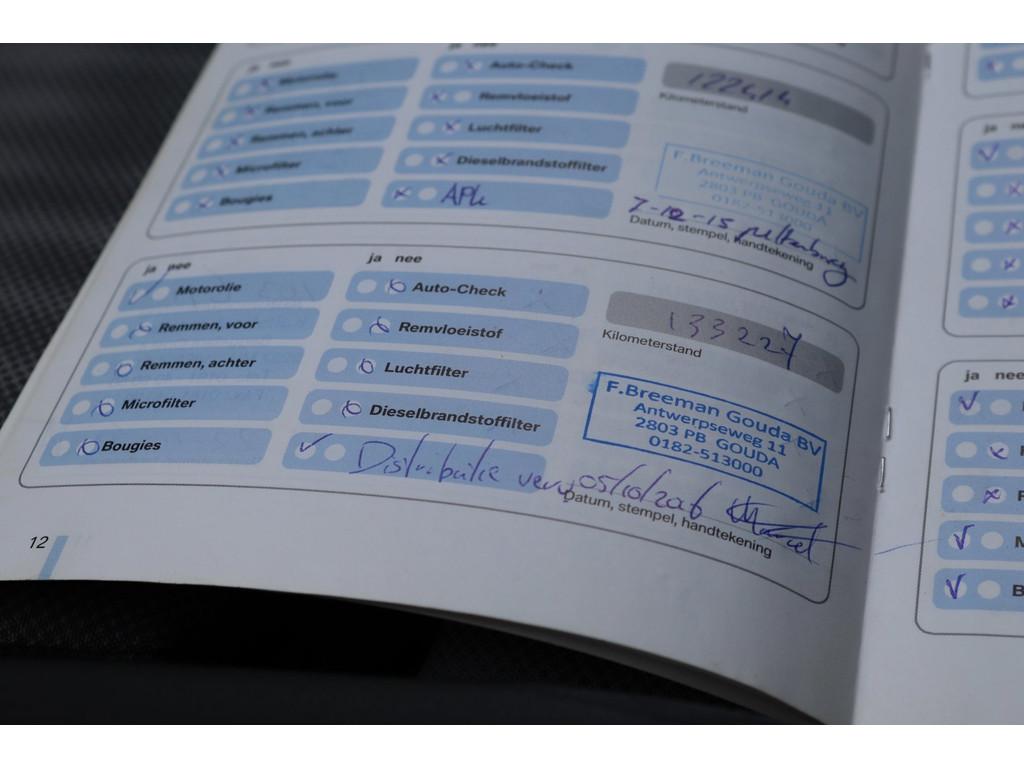 ja nee
Motorolie
Remmen, voor
Remmen, achter
Microfilter
Bougies
ja nee
Auto-Check
Remvloeistof
Luchtfilter
Dieselbrandstoffilter
APK
122414
Kilometerstand
F.Breeman Gouda BV
Antwerpseweg 11
2803 PB GOUDA
0182-513000
7-12-15
Datum, stempel, handtekening
ja nee
Motorolie
Remmen, voor
Remmen, achter
Microfilter
Bougies
ja nee
Auto-Check
Remvloeistof
Luchtfilter
Dieselbrandstoffilter
Distributie verv
133227
Kilometerstand
F.Breeman Gouda BV
Antwerpseweg 11
2803 PB GOUDA
0182-513000
05/10/2016
Datum, stempel, handtekening
12
ja
ja nee